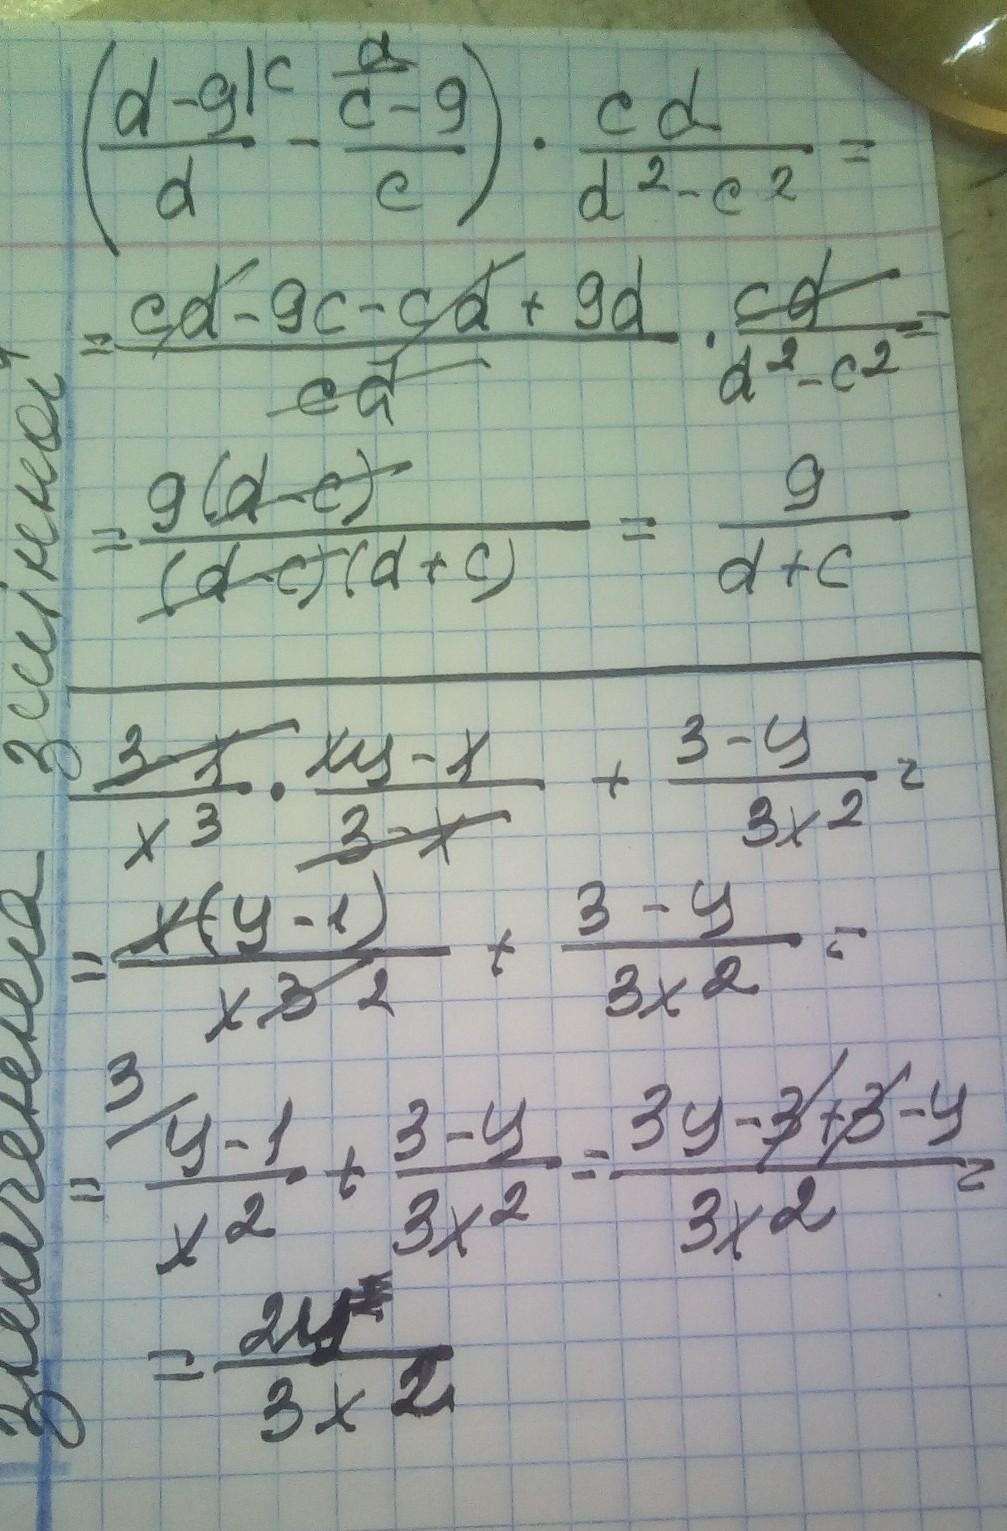 (d-9|c/d - d/c-9/c) · cd/d²-c² =
= cd-9c-cd+9d/cd · cd/d²-c² =
= 9(d-c)/(d-c)(d+c) = 9/d+c
3-x/x3 · xy-x/3-x + 3-y/3x2 =
= x(y-1)/x32 + 3-y/3x2 =
= 3/y-1/x2 + 3-y/3x2 = 3y-3+3-y/3x2 =
= 2y/3x2
змінної